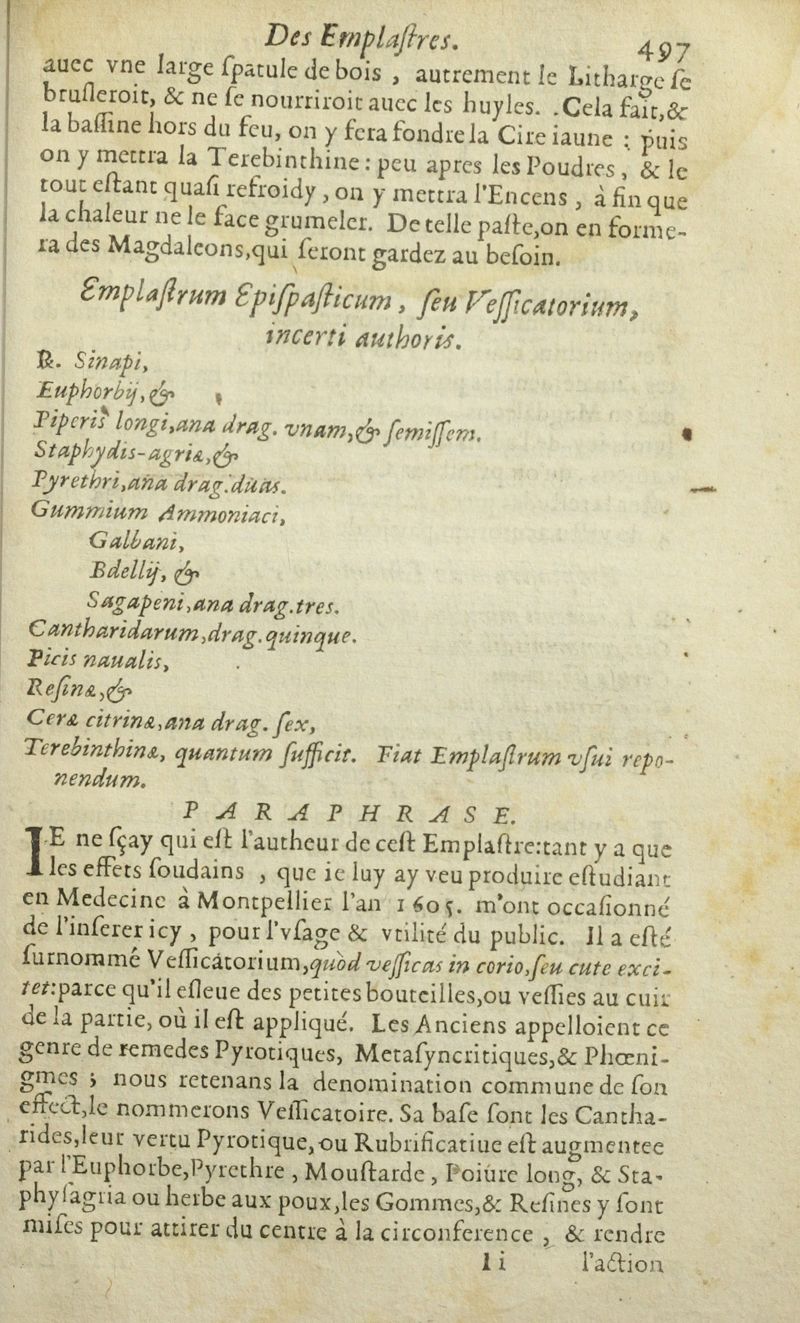 Des Emplaſtres. 497
auec vne large ſpatule de bois , autrement le Litharge ſe
bruſleroit, & ne ſe nourriroit auec les huyles. .Cela fait,&
la baſſine hors du feu, on y fera fondre la Cire iaune : puis
on y mettra la Terebinthine : peu apres les Poudres, & le
tout eſtant quaſi refroidy , on y mettra l'Encens , à fin que
la chaleur ne le face grumeler. De telle paſte,on en forme-
ra des Magdaleons,qui ſeront gardez au beſoin.
Emplaſtrum Epiſpaſticum, ſeu Veſſicatorium,
incerti authoris.
℞. Sinapi,
Euphorbij, &
Piperis longi,ana drag. vnam,& ſemiſſem.
Staphydis-agriæ,&
Pyrethri,aña drag.duas.
Gummium Ammoniaci,
Galbani,
Bdellij, &
Sagapeni,ana drag.tres.
Cantharidarum,drag.quinque.
Picis naualis,
Reſinæ,&
Ceræ citrinæ,ana drag. ſex,
Terebinthinæ, quantum ſufficit. Fiat Emplaſtrum vſui repo-
nendum.
PARAPHRASE.
IE ne ſçay qui eſt l'autheur de ceſt Emplaſtre:tant y a que
les effets ſoudains , que ie luy ay veu produire eſtudiant
en Medecine à Montpellier l'an 1605. m'ont occaſionné
de l'inſerer icy , pour l'vſage & vtilité du public. Il a eſté
ſurnommé Veſſicatorium,quòd veſſicas in corio,ſeu cute exci-
tet:parce qu'il eſleue des petites bouteilles,ou veſſies au cuir
de la partie, où il eſt appliqué. Les Anciens appelloient ce
genre de remedes Pyrotiques, Metaſyncritiques,& Phœni-
gmes ; nous retenans la denomination commune de ſon
effect,le nommerons Veſſicatoire. Sa baſe ſont les Cantha-
rides,leur vertu Pyrotique,ou Rubrificatiue eſt augmentee
par l'Euphorbe,Pyrethre , Mouſtarde , Poiure long, & Sta-
phyſagria ou herbe aux poux,les Gommes,& Reſines y ſont
miſes pour attirer du centre à la circonference , & rendre
Ii l'action